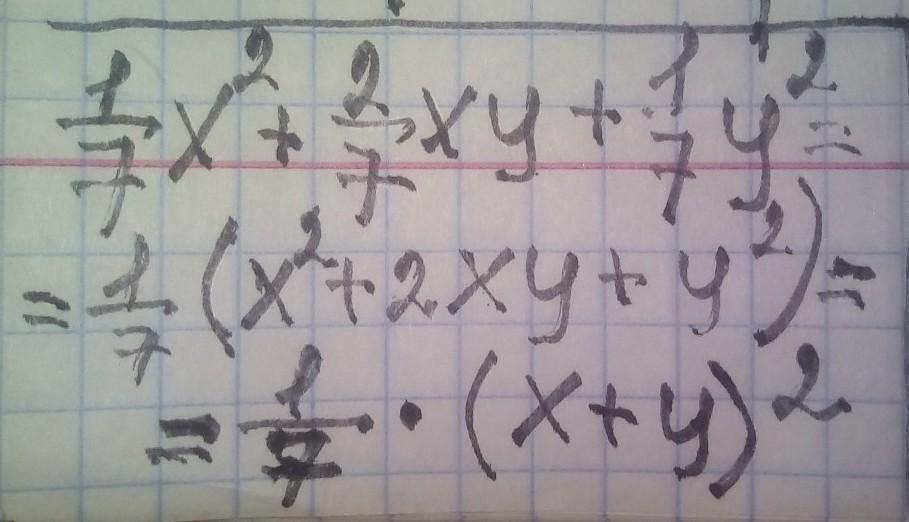 1/7 x² + 2/7 xy + 1/7 y² =
= 1/7 (x² + 2xy + y²) =
= 1/7 · (x + y)²